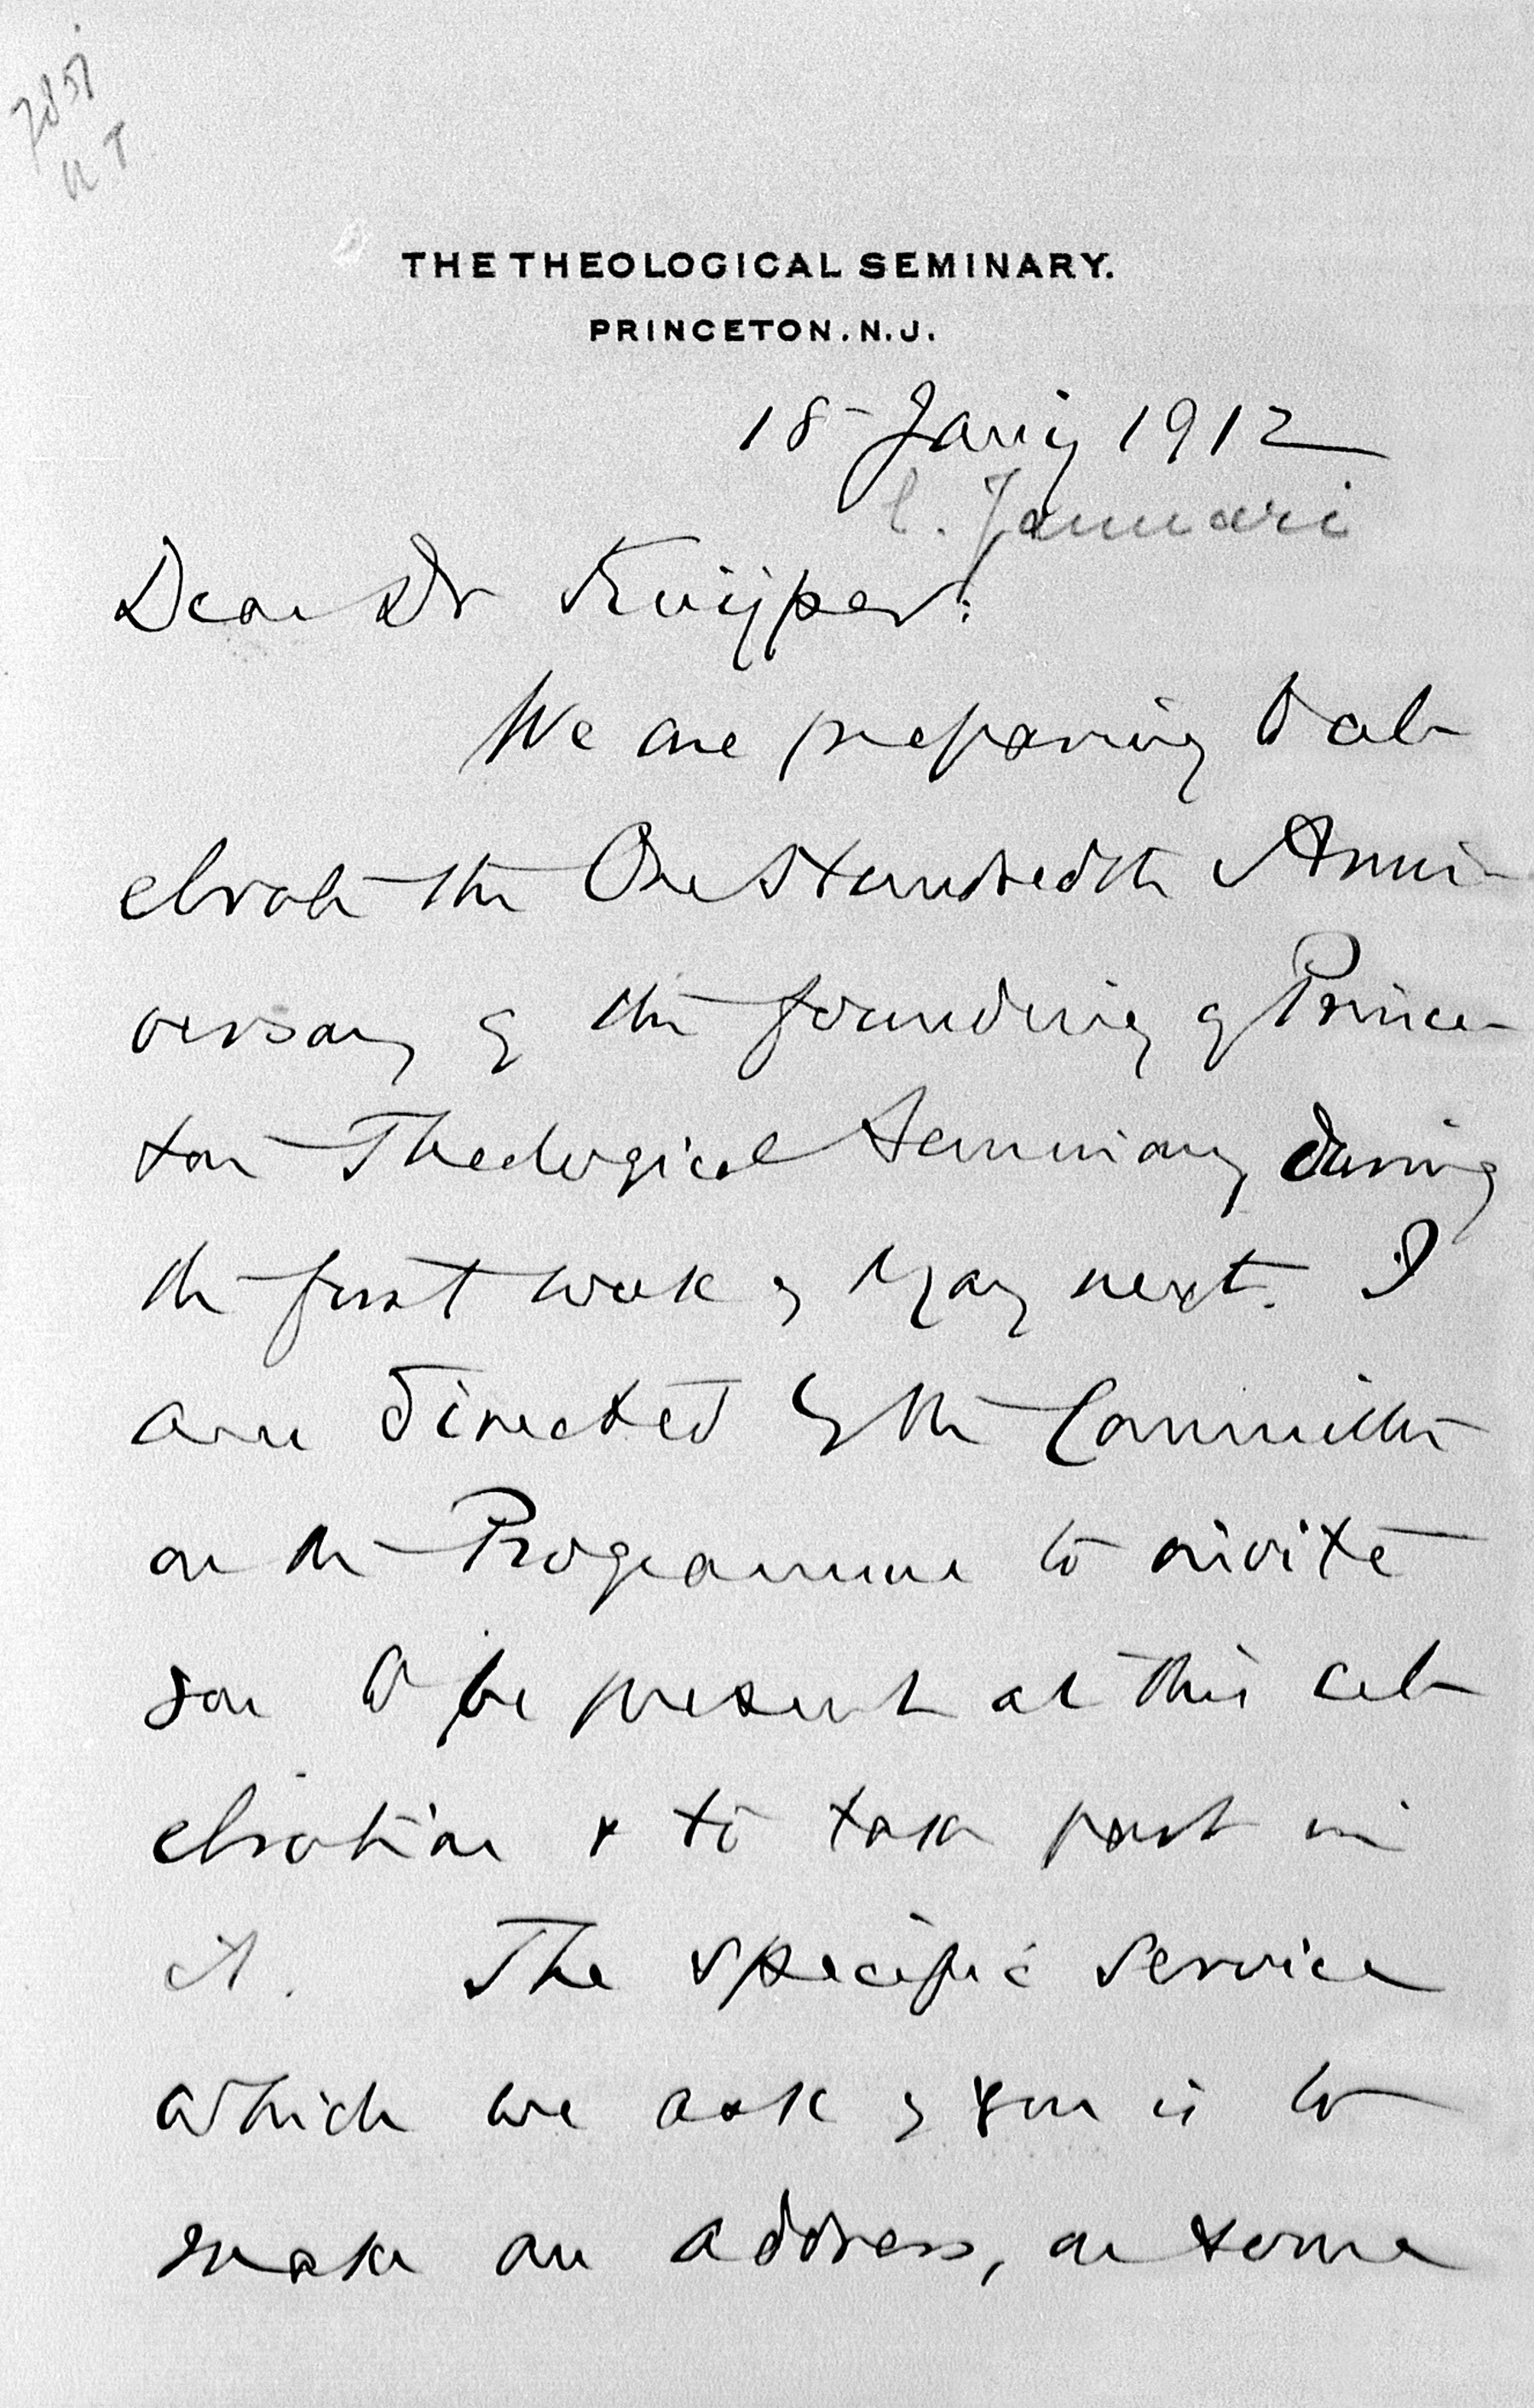 7851
THE THEOLOGICAL SEMINARY.
PRINCETON.N.J.
18 Jan'y 1912
Januari
Dear Dr Kuijper:
We are preparing to cel-
ebrate the One Hundredth Anni-
versary of the founding of Prince-
ton Theological Seminary during
the first week of May next. I
am directed by the Committee
on the Programme to invite
you to be present at this cel-
ebration & to take part in
it. The specific service
which we ask of you is to
make an address, on some